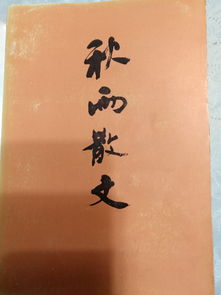 秋雨散文